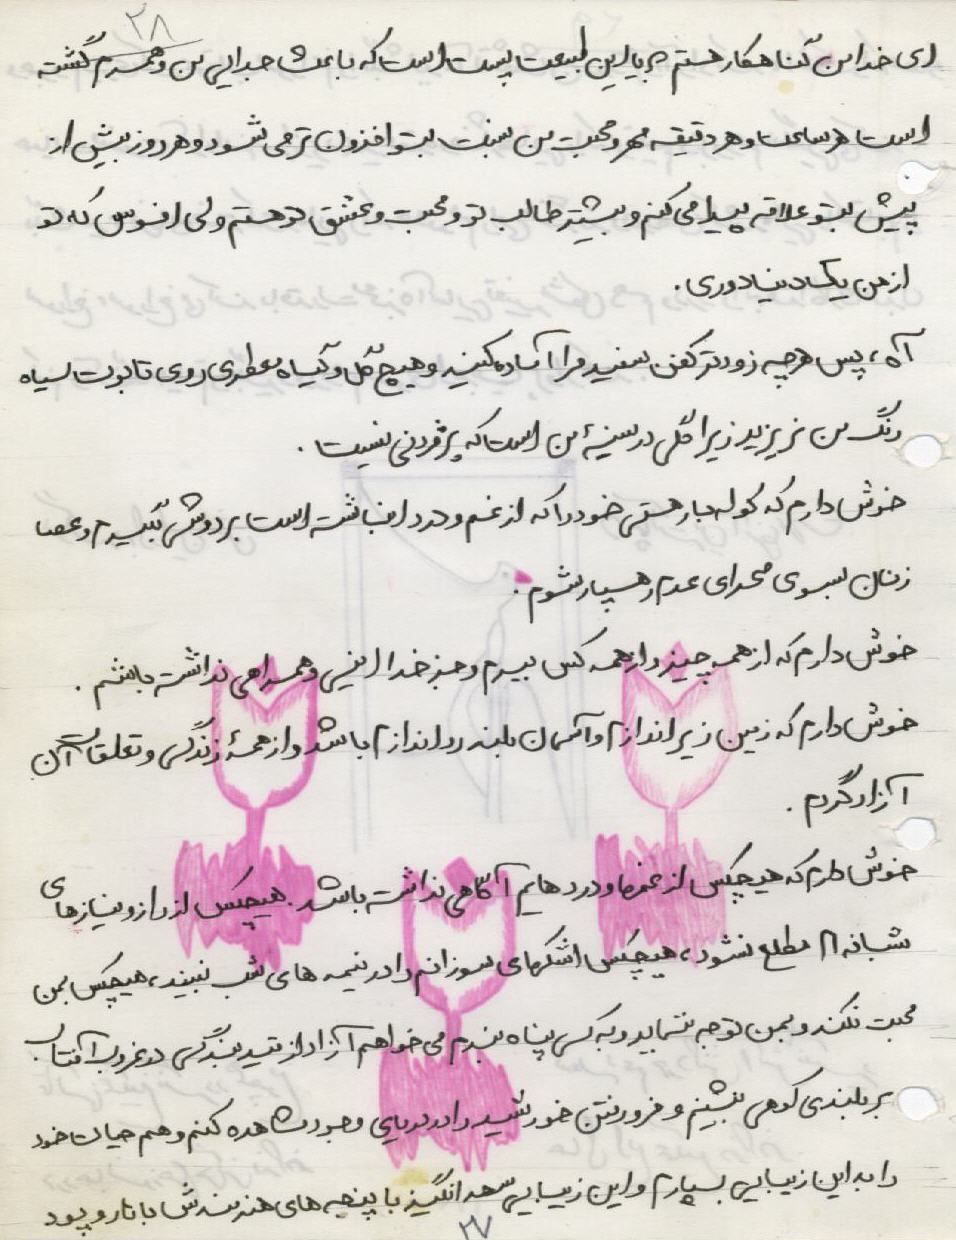 ۲۸
ای خدا من گناهکار هستم و یا این طبیعت پست است که باعث جدایی من و همسرم گشته
است هر ساعت و هر دقیقه مهر و محبت من نسبت بتو افزون تر می شود و هر روز بیش از
پیش بتو علاقه پیدا می کنم و بیشتر طالب تو و محبت و عشق تو هستم ولی افسوس که تو
از من یک دنیا دوری.
آه، پس هرچه زودتر کفن سفید مرا آماده کنید و هیچ گل و گیاه معطری روی تابوت سیاه
رنگ من نریزید زیرا گلی در سینهٔ من است که پژمردنی نیست.
خوش دارم که کوله بار هستی خود را که از غم و درد انباشته است بر دوش بگیرم و عصا
زنان بسوی صحرای عدم رهسپار شوم.
خوش دارم که از همه چیز و از همه کس ببرم و جز خدا انیس و همراهی نداشته باشم.
خوش دارم که زمین زیراندازم و آسمان بلند رواندازم باشد و از همهٔ زندگی و تعلقات آن
آزاد گردم.
خوش دارم که هیچکس از غمها و دردهایم آگاهی نداشته باشد. هیچکس از راز و نیازهای
شبانه ام مطلع نشود، هیچکس اشکهای سوزانم را در نیمه های شب نبیند، هیچکس بمن
محبت نکند و بمن توجه ننماید و به کسی پناه نبرم می خواهم آزاد از قید بندگی در غروب آفتاب
بر بلندی کوهی بنشینم و فرو رفتن خورشید را در دریای وجود مشاهده کنم و هم حیات خود
را به این زیبایی بسپارم و این زیبایی سحرانگیز با پنجه های هنرمندش با تار و پود
۲۷